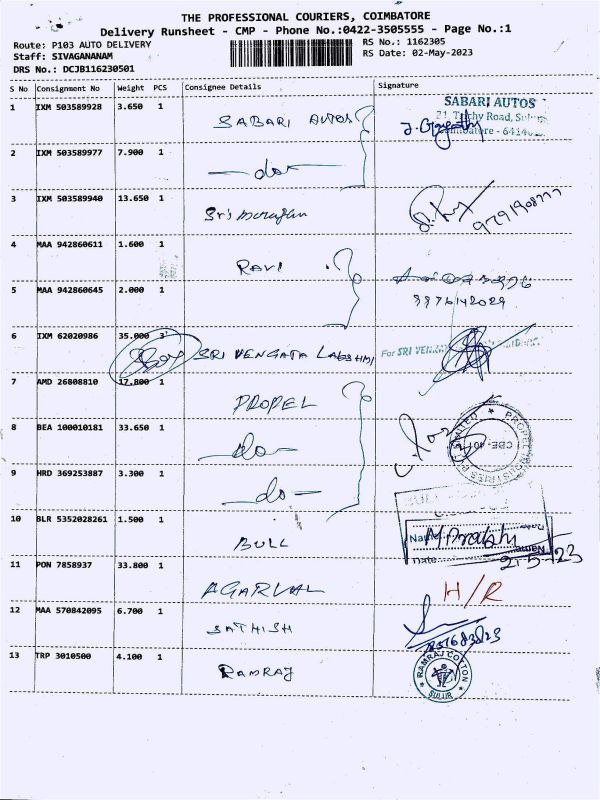 THE PROFESSIONAL COURIERS, COIMBATORE
Delivery Runsheet - CMP - Phone No.:0422-3505555 - Page No.:1
Route: P103 AUTO DELIVERY
RS No.: 1162305
Staff: SIVAGANANAM
RS Date: 02-May-2023
DRS No.: DCJB116230501
S No Consignment No Weight PCS Consignee Details Signature
1 IXM 503589928 3.650 1 SABARI AUTOS
SABARI AUTOS
21, Trichy Road, Sulur,
Coimbatore - 6414
2 IXM 503589977 7.900 1 -do-
3 IXM 503589940 13.650 1 Sri murugan
4 MAA 942860611 1.600 1 RAVI
5 MAA 942860645 2.000 1
6 IXM 62020986 35.000 3 SRI VENGATA LAKSHMI For SRI
7 AMD 26808810 17.800 1 PROPEL
8 BEA 100010181 33.650 1 -do-
PROPEL INDUSTRIES LIMITED
CBE-401
9 HRD 369253887 3.300 1 -do-
10 BLR 5352028261 1.500 1 BULL
Name
Date 2-5-23
11 PON 7858937 33.800 1 AGARWAL H/R
12 MAA 570842095 6.700 1 SATHISH
13 TRP 3010500 4.100 1 RAMRAJ
RAMRAJ COTTON
SULUR